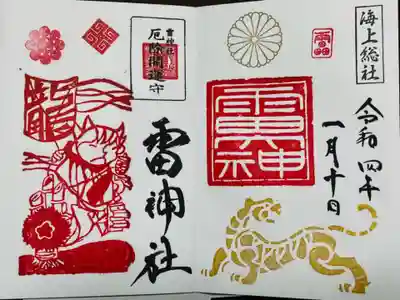 海上総社
令和四年
一月十日
雷神社
厄除開運守
雷神社
龍